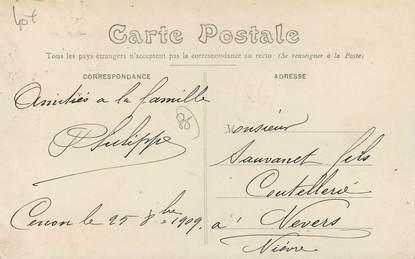 Carte Postale
Tous les pays étrangers n'acceptent pas la correspondance au recto (Se renseigner à la Poste)
CORRESPONDANCE
Amitiés a la famille
Philippe
Cenon le 25 8bre 1909
ADRESSE
Monsieur
Sauvanet fils
Coutellerie
à Nevers
Nièvre